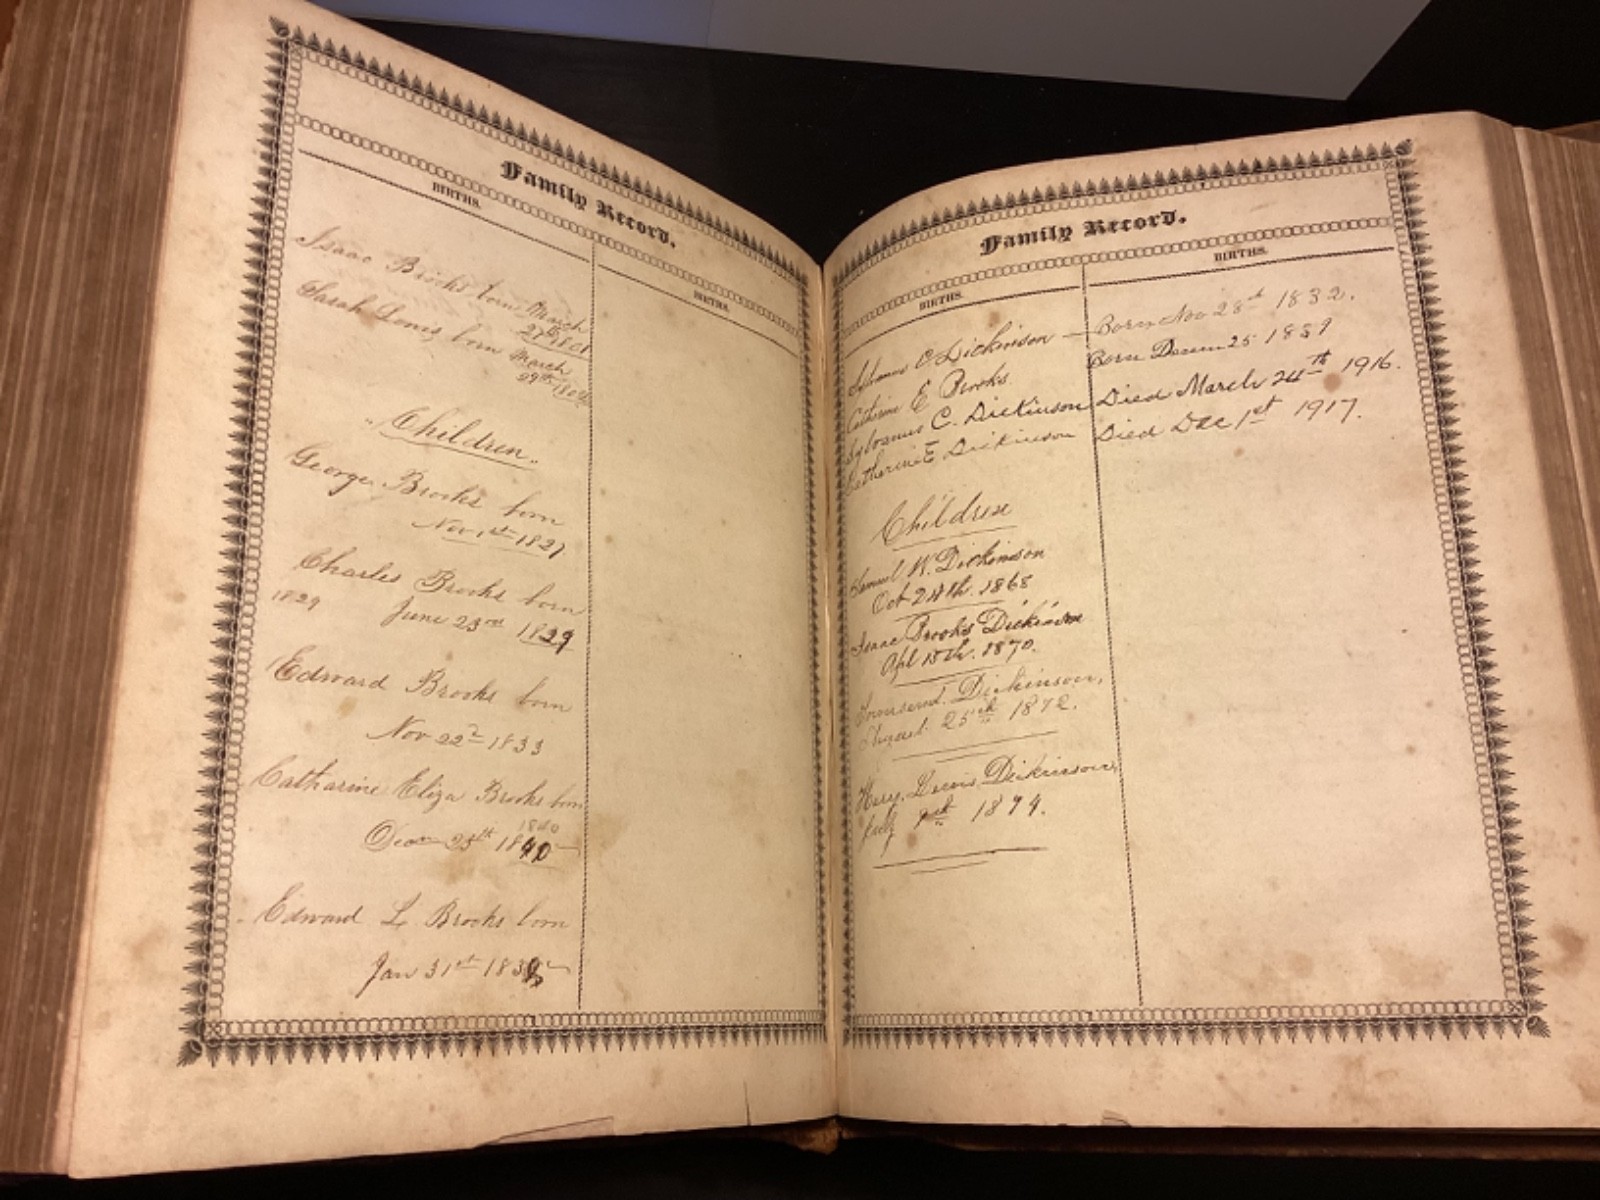 Family Record.
BIRTHS.
BIRTHS.
Isaac Brooks born March
27th 1801
Sarah Lewis born March
29th
"Children"
George Brooks born
Nov. 1st 1827
Charles Brooks born
1829 June 23rd 1829
Edward Brooks born
Nov 22d 1833
Catharine Eliza Brooks born
1840
25th 1840
Edward L. Brooks born
Jan 31st
Family Record.
BIRTHS.
BIRTHS.
Sylvanus C. Dickinson — Born Nov 28th 1832.
Catherine E Brooks. Born Decem 25
Sylvanus C. Dickinson Died March 24th 1916.
Catharine E Dickinson Died Dec 1st 1917.
Children
Samuel W. Dickinson
Oct 24th. 1868
Isaac Brooks Dickinson
Apl 15th. 1870.
Townsend. Dickinson,
August. 25th 1872.
Lewis Dickinson,
July